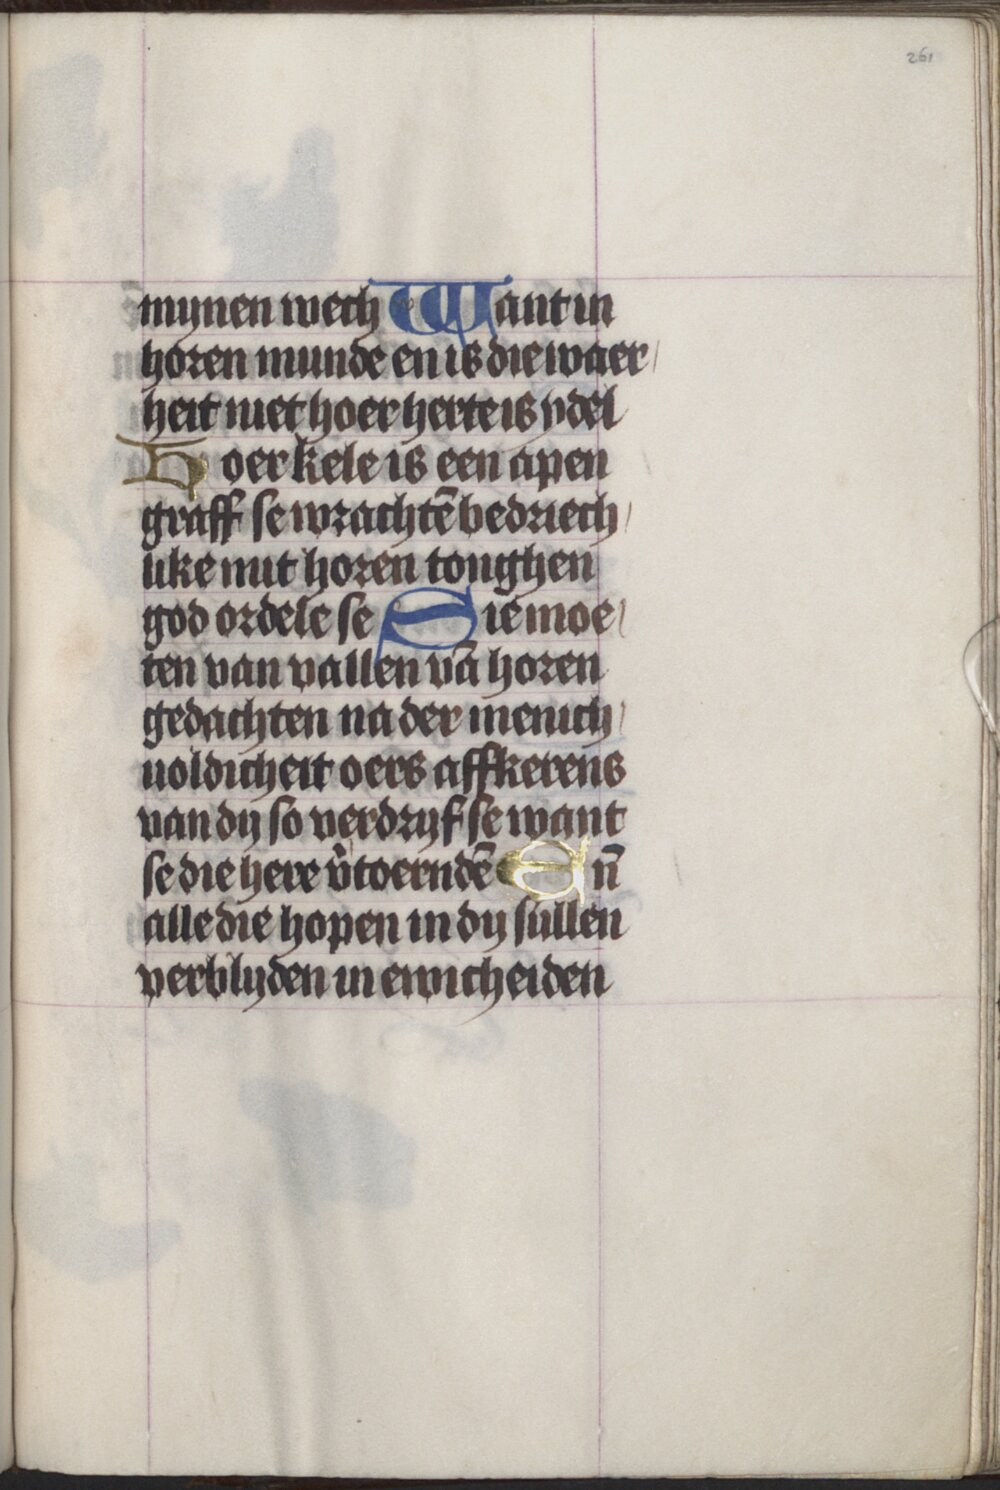 261
mynen wech Want in
horen munde en is die waer/
heit niet hoer herte is ydel
Hoer kele is een apen
graff se wrachtē bedriech/
like mit horen tonghen
god ordele se Sie moe/
ten van vallen vā horen
gedachten na der menich/
uoldicheit oers affkerens
van dy so verdryf se want
se die here v̄toerndē En̄
alle die hopen in dy sullen
verblyden in ewicheiden